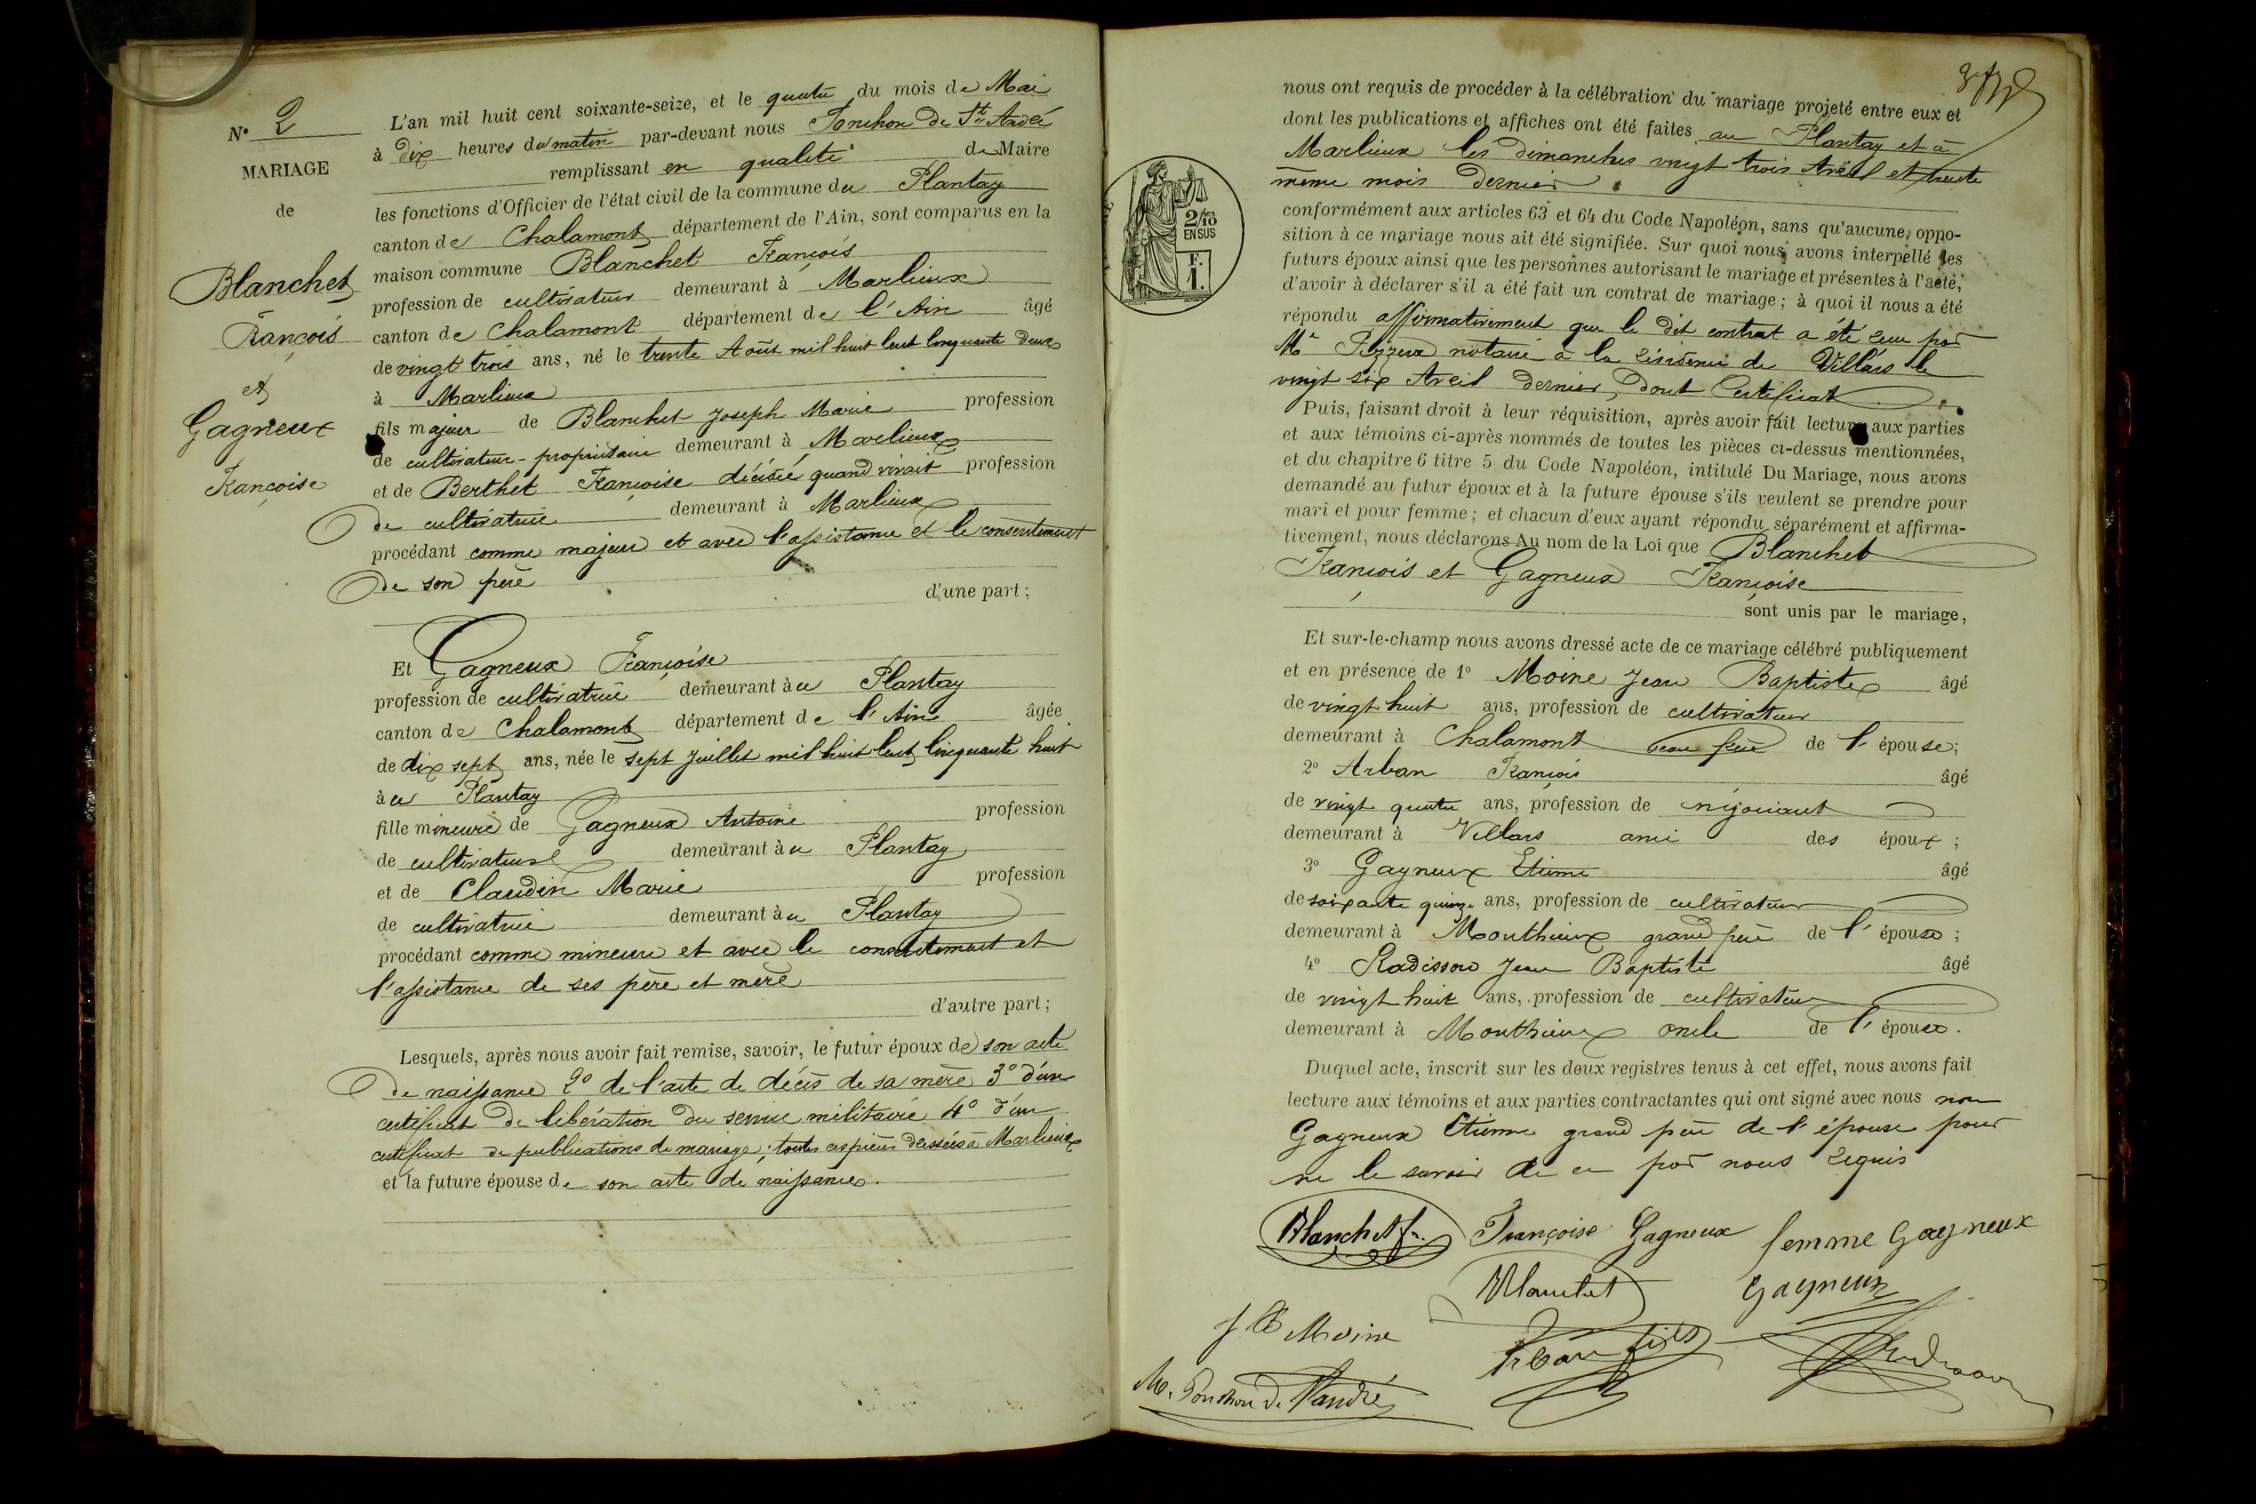 N° 2
MARIAGE
de
Blanchet
François
et
Gagneux
Françoise
L'an mil huit cent soixante-seize, et le quatre du mois de Mai
à dix heures du matin par-devant nous Ponchon De St André
remplissant en qualité de Maire
les fonctions d'Officier de l'état civil de la commune du Plantay
canton de Chalamont département de l'Ain, sont comparus en la
maison commune Blanchet François
profession de cultivateur demeurant à Marlieux
canton de Chalamont département de l'Ain âgé
de vingt trois ans, né le trente Août mil huit Cent Cinquante Deux
à Marlieux
fils majeur de Blanchet Joseph Marie profession
de cultivateur-propriétaire demeurant à Marlieux
et de Berthet Françoise décédée quand vivait profession
de cultivatrice demeurant à Marlieux
procédant comme majeur et avec l'assistance et le consentement
de son père
d'une part;
Et Gagneux Françoise
profession de cultivatrice demeurant à u Plantay
canton de Chalamont département de l'Ain âgée
de dix sept ans, née le sept Juillet mil huit Cent Cinquante huit
à u Plantay
fille mineure de Gagneux Antoine profession
de cultivateur demeurant à u Plantay
et de Claudin Marie profession
de cultivatrice demeurant à u Plantay
procédant comme mineure et avec le consentement et
l'assistance de ses père et mère
d'autre part;
Lesquels, après nous avoir fait remise, savoir, le futur époux de son acte
de naissance 2° de l'acte de décès de sa mère 3° d'un
certificat de libération du service militaire 4° d'un
certificat de publications de mariage; toutes ces pièces dressées à Marlieux
et la future épouse de son acte de naissance.
nous ont requis de procéder à la célébration du mariage projeté entre eux et
dont les publications et affiches ont été faites au Plantay et à
Marlieux les dimanches vingt trois Avril et trente
même mois dernier
2/10
EN SUS
F.
1.
conformément aux articles 63 et 64 du Code Napoléon, sans qu'aucune oppo-
sition à ce mariage nous ait été signifiée. Sur quoi nous avons interpellé les
futurs époux ainsi que les personnes autorisant le mariage et présentes à l'acte,
d'avoir à déclarer s'il a été fait un contrat de mariage; à quoi il nous a été
répondu affirmativement que le dit contrat a été reçu par
Me notaire à la résidence de Villars le
vingt six Avril dernier, dont Certificat
Puis, faisant droit à leur réquisition, après avoir fait lecture aux parties
et aux témoins ci-après nommés de toutes les pièces ci-dessus mentionnées,
et du chapitre 6 titre 5 du Code Napoléon, intitulé Du Mariage, nous avons
demandé au futur époux et à la future épouse s'ils veulent se prendre pour
mari et pour femme; et chacun d'eux ayant répondu séparément et affirma-
tivement, nous déclarons Au nom de la Loi que Blanchet
François et Gagneux Françoise
sont unis par le mariage,
Et sur-le-champ nous avons dressé acte de ce mariage célébré publiquement
et en présence de 1° Moine Jean Baptiste âgé
de vingt huit ans, profession de cultivateur
demeurant à Chalamont beau frère de l'épouse;
2° Arban François âgé
de vingt quatre ans, profession de négociant
demeurant à Villars ami des époux;
3° Gagneux Etienne âgé
de soixante quinze ans, profession de cultivateur
demeurant à Monthieux grand père de l'épouse;
4° Radisson Jean Baptiste âgé
de vingt huit ans, profession de cultivateur
demeurant à Monthieux oncle de l'épouse.
Duquel acte, inscrit sur les deux registres tenus à cet effet, nous avons fait
lecture aux témoins et aux parties contractantes qui ont signé avec nous non
Gagneux Etienne grand père de l'épouse pour
ne le savoir de ce par nous requis
Blanchet fr. Françoise Gagneux femme Gagneux
Blanchet Gagneux
J B Moine Arban fils Radisson
M. Ponchon de St André